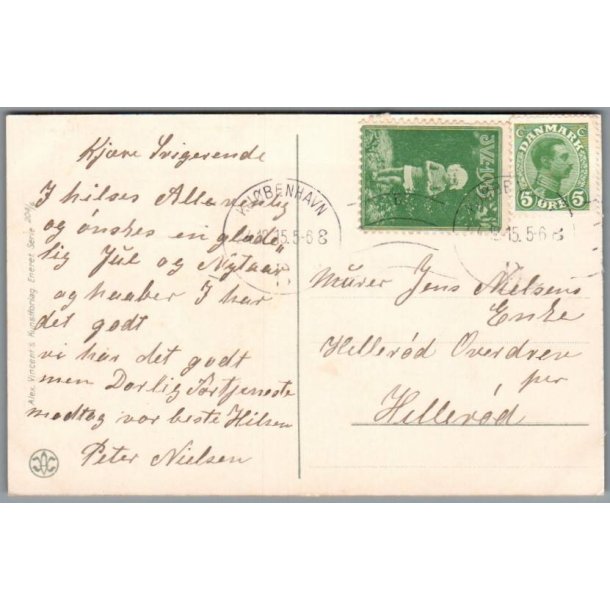 Kjære Svigerende
I hilses Alle
og ønskes en glæde
lig Jul og Nytaar
og haaber I har
det godt
vi har det godt
men Dorlig Fortjeneste
modtag vor beste Hilsen
Peter Nielsen
Alex. Vincent's Kunstforlag. Eneret Serie
KJØBENHAVN
12.15.5-6 E
JUL 1915
DANMARK
5 ØRE 5
15.5-6 E
Murer Jens Nielsens
Enke
Hillerød Overdrev
per
Hillerød